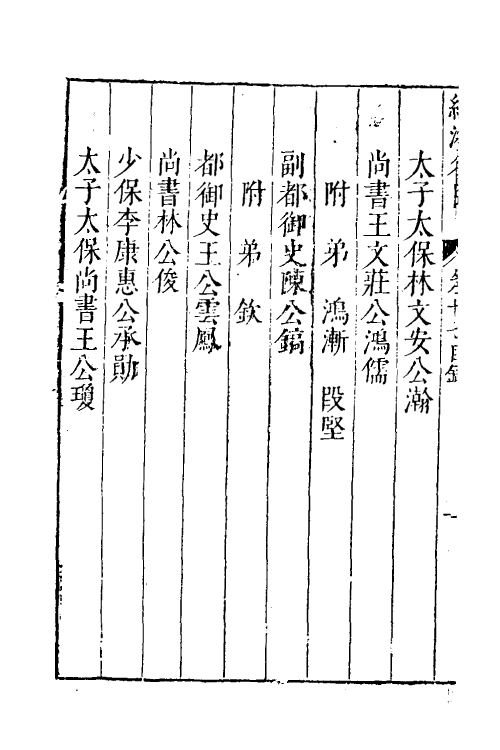 太子太保林文安公瀚
尚書王文莊公鴻儒
附 弟 鴻漸 段堅
副都御史陳公鎬
附 弟 欽
都御史王公雲鳳
尚書林公俊
少保李康惠公承勛
太子太保尚書王公瓊